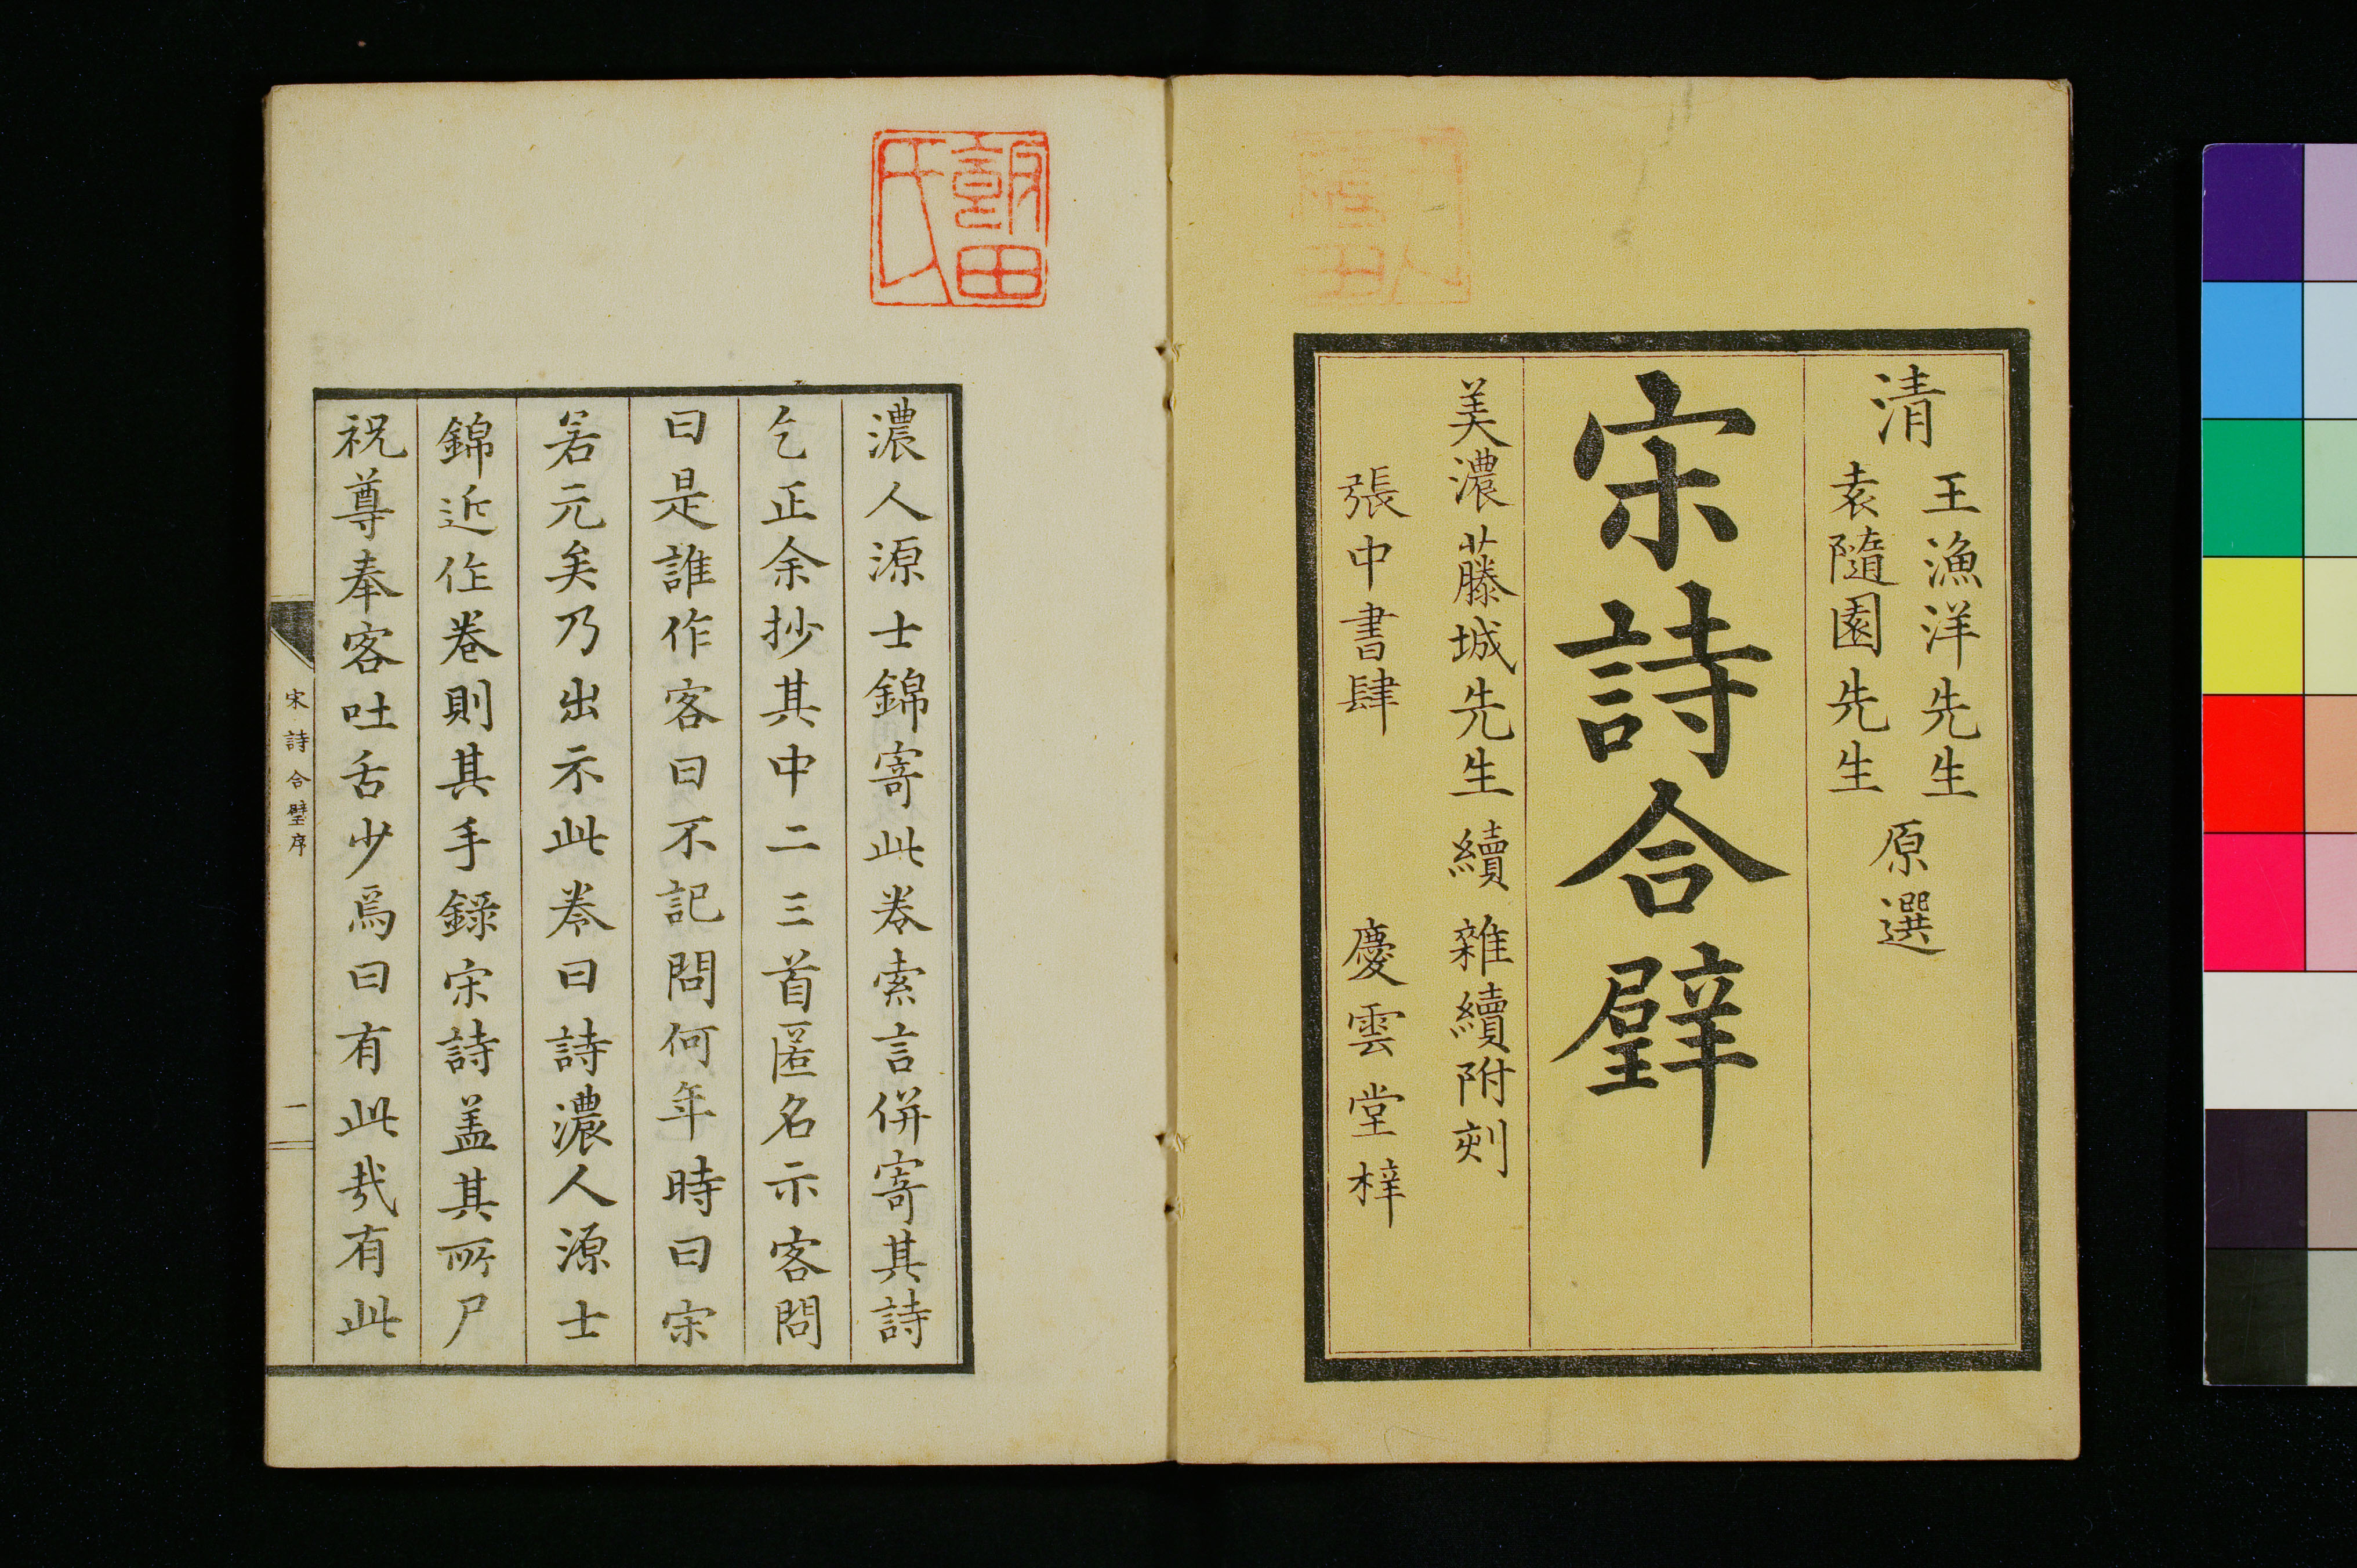 清
王漁洋先生
袁隨園先生
原選
宋詩合璧
美濃藤城先生續 雜續附刻
張中書肆 慶雲堂梓
濃人源士錦寄此卷索言併寄其詩
乞正余抄其中二三首匿名示客問
曰是誰作客曰不記問何年時曰宋
若元矣乃出示此卷曰詩濃人源士
錦近作卷則其手録宋詩盖其所尸
祝尊奉客吐舌少焉曰有此哉有此
宋詩合璧序
一